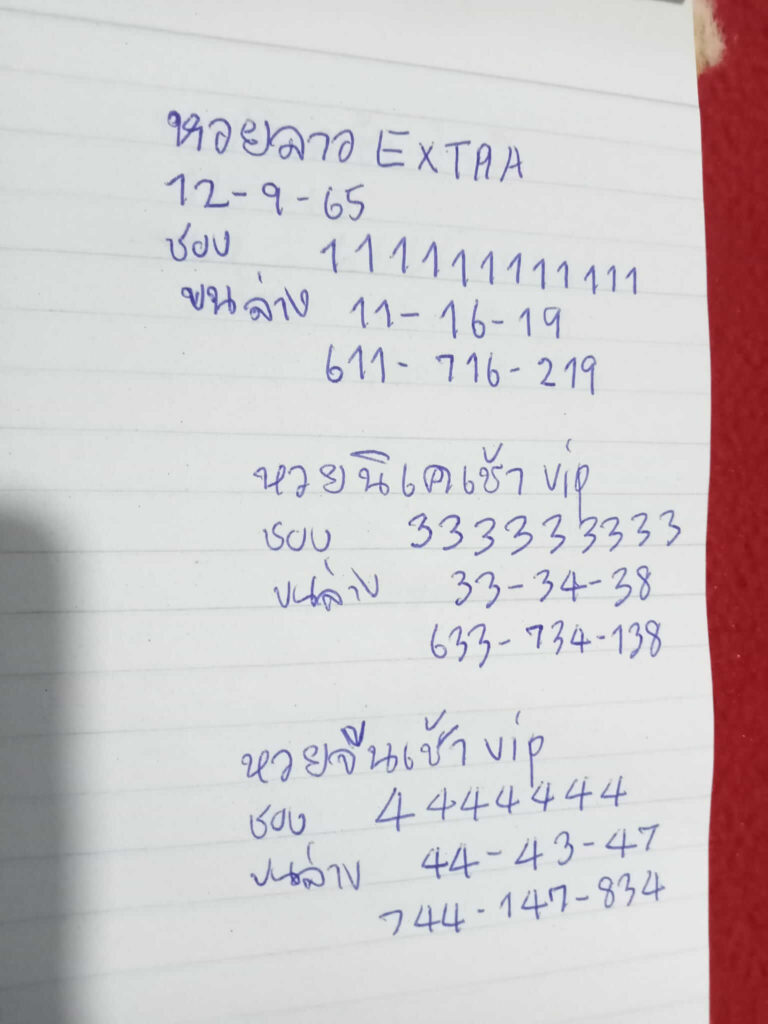 หวยลาว EXTAA
12-9-65
ชอบ 111111111111
บนล่าง 11-16-19
611-716-219
หวยนิเคเช้า vip
ชอบ 333333333
บนล่าง 33-34-38
633-734-138
หวยจีนเช้า vip
ชอบ 4444444
บนล่าง 44-43-47
744-147-834